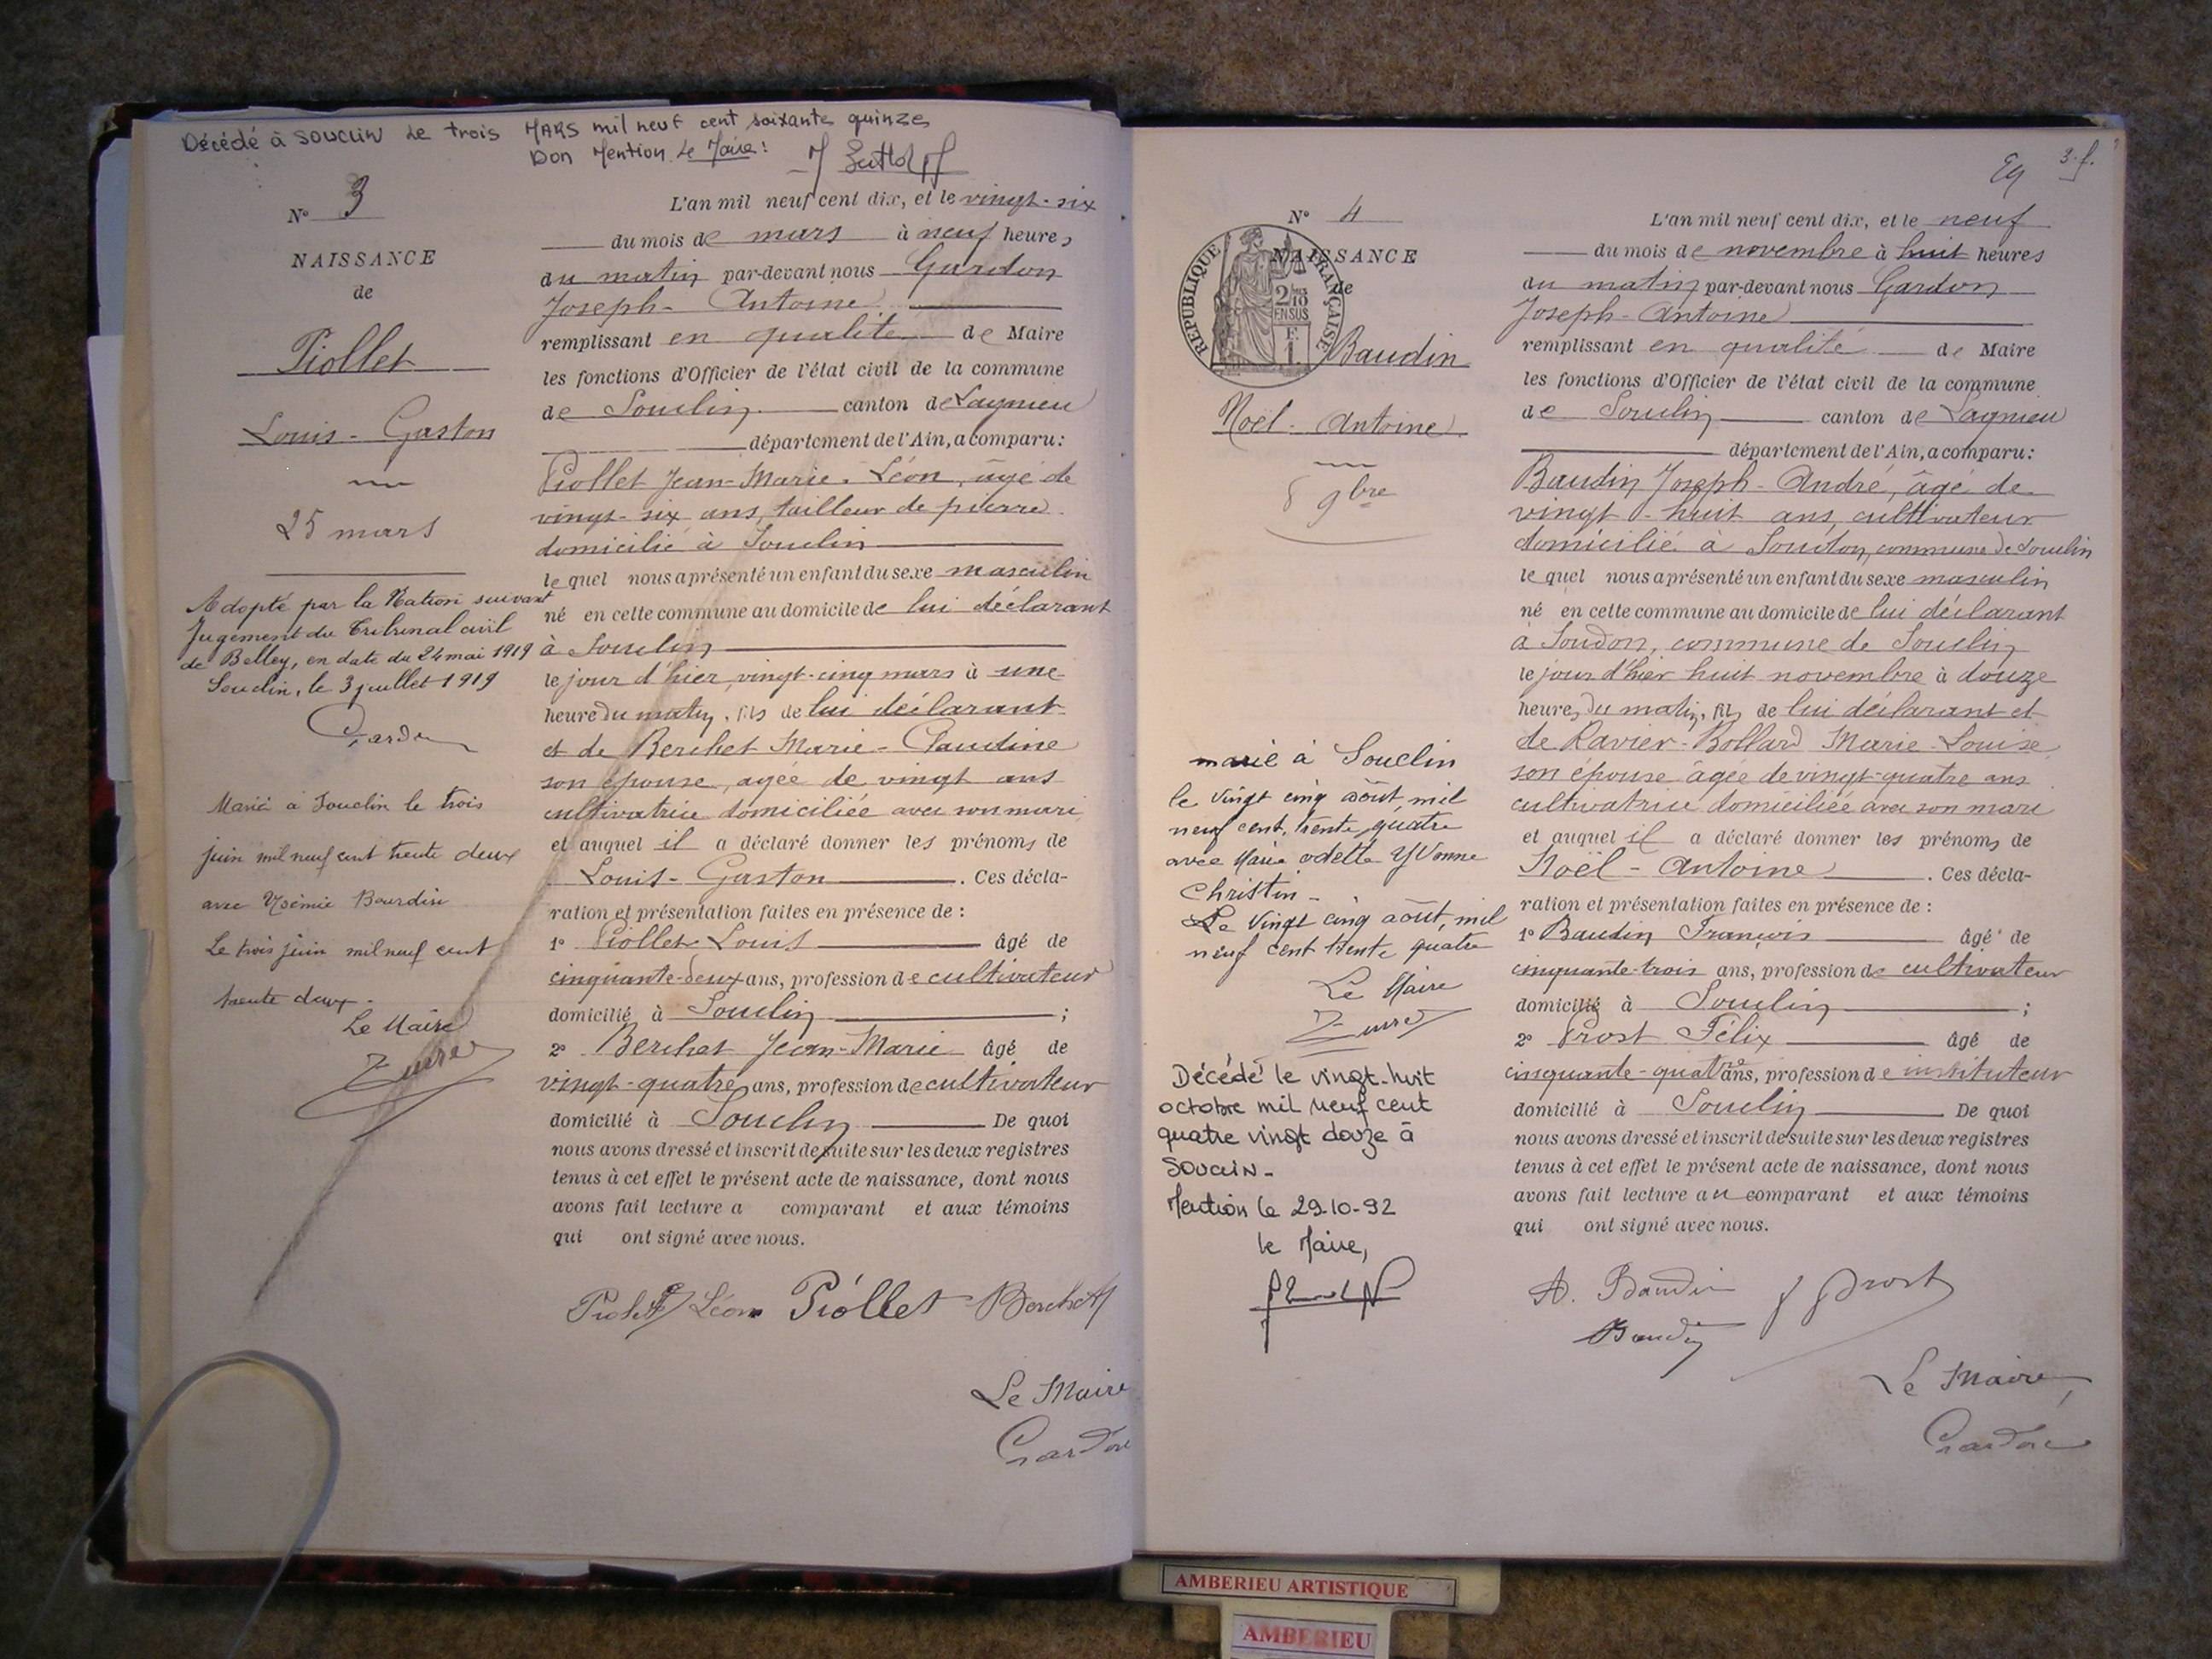 Décédé à SOUCLIN le trois MARS mil neuf cent soixante quinze
Don Mention Le Maire:
N° 3
NAISSANCE
de
Piollet
Louis-Gaston
25 mars
Adopté par la Nation suivant
Jugement du Tribunal civil
de Belley, en date du 24 mai 1919
Souclin, le 3 juillet 1919
Gardon
Marié à Souclin le trois
juin mil neuf cent trente deux
avec Noémie Bourdin
Le trois juin mil neuf cent
trente deux.
Le Maire
L'an mil neuf cent dix, et le vingt-six
du mois de mars à neuf heures
du matin par-devant nous Gardon
Joseph-Antoine
remplissant en qualité de Maire
les fonctions d'Officier de l'état civil de la commune
de Souclin canton de Lagnieu
département de l'Ain, a comparu:
Piollet Jean-Marie-Léon, âgé de
vingt-six ans, tailleur de pierre
domicilié à Souclin
lequel nous a présenté un enfant du sexe masculin
né en cette commune au domicile de lui déclarant
à Souclin
le jour d'hier, vingt-cinq mars à une
heure du matin, fils de lui déclarant
et de Berchet Marie-Claudine
son épouse, agée de vingt ans
cultivatrice domiciliée avec son mari
et auquel il a déclaré donner les prénoms de
Louis-Gaston. Ces décla-
ration et présentation faites en présence de :
1° Piollet Louis âgé de
cinquante-deux ans, profession de cultivateur
domicilié à Souclin ;
2° Berchet Jean-Marie âgé de
vingt-quatre ans, profession de cultivateur
domicilié à Souclin De quoi
nous avons dressé et inscrit de suite sur les deux registres
tenus à cet effet le présent acte de naissance, dont nous
avons fait lecture a comparant et aux témoins
qui ont signé avec nous.
Piollet Léon Piollet Berchet
Le Maire
Gardon
3. f.
N° 4
NAISSANCE
de
REPUBLIQUE FRANÇAISE
2/10
EN SUS
Baudin
Noël-Antoine
8 9bre
marié à Souclin
le vingt cinq août mil
neuf cent trente quatre
avec Marie Odette Yvonne
Christin-
Le vingt cinq août mil
neuf cent trente quatre
Le Maire
Décédé le vingt-huit
octobre mil neuf cent
quatre vingt douze à
SOUCLIN-
Mention le 29-10-92
le Maire,
L'an mil neuf cent dix, et le neuf
du mois de novembre à huit heures
du matin par-devant nous Gardon
Joseph-Antoine
remplissant en qualité de Maire
les fonctions d'Officier de l'état civil de la commune
de Souclin canton de Lagnieu
département de l'Ain, a comparu:
Baudin Joseph-André, âgé de
vingt-huit ans, cultivateur
domicilié à Soudon, commune de Souclin
lequel nous a présenté un enfant du sexe masculin
né en cette commune au domicile de lui déclarant
à Soudon, commune de Souclin
le jour d'hier huit novembre à douze
heures du matin, fils de lui déclarant et
de Ravier-Bollard Marie-Louise
son épouse âgée de vingt-quatre ans
cultivatrice domiciliée avec son mari
et auquel il a déclaré donner les prénoms de
Noël-Antoine. Ces décla-
ration et présentation faites en présence de :
1° Baudin François âgé de
cinquante-trois ans, profession de cultivateur
domicilié à Souclin ;
2° Prost Félix âgé de
cinquante-quatre ans, profession de instituteur
domicilié à Souclin De quoi
nous avons dressé et inscrit de suite sur les deux registres
tenus à cet effet le présent acte de naissance, dont nous
avons fait lecture au comparant et aux témoins
qui ont signé avec nous.
A. Baudin Prost
Baudin
Le Maire,
Gardon
AMBERIEU ARTISTIQUE
AMBERIEU